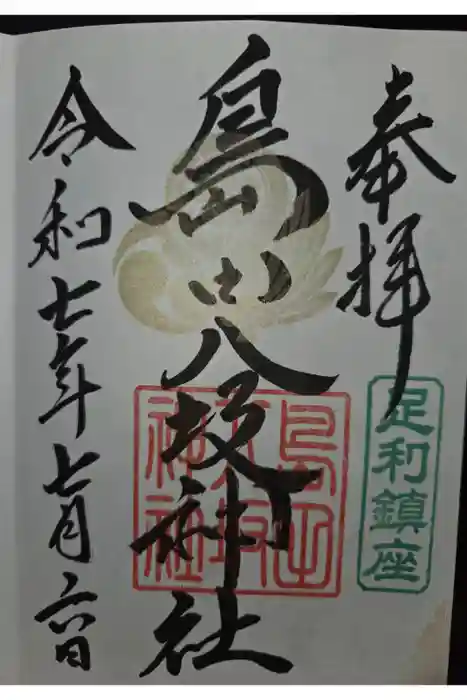 奉拝
足利鎮座
島田八坂神社
島田八坂神社
令和七年七月六日